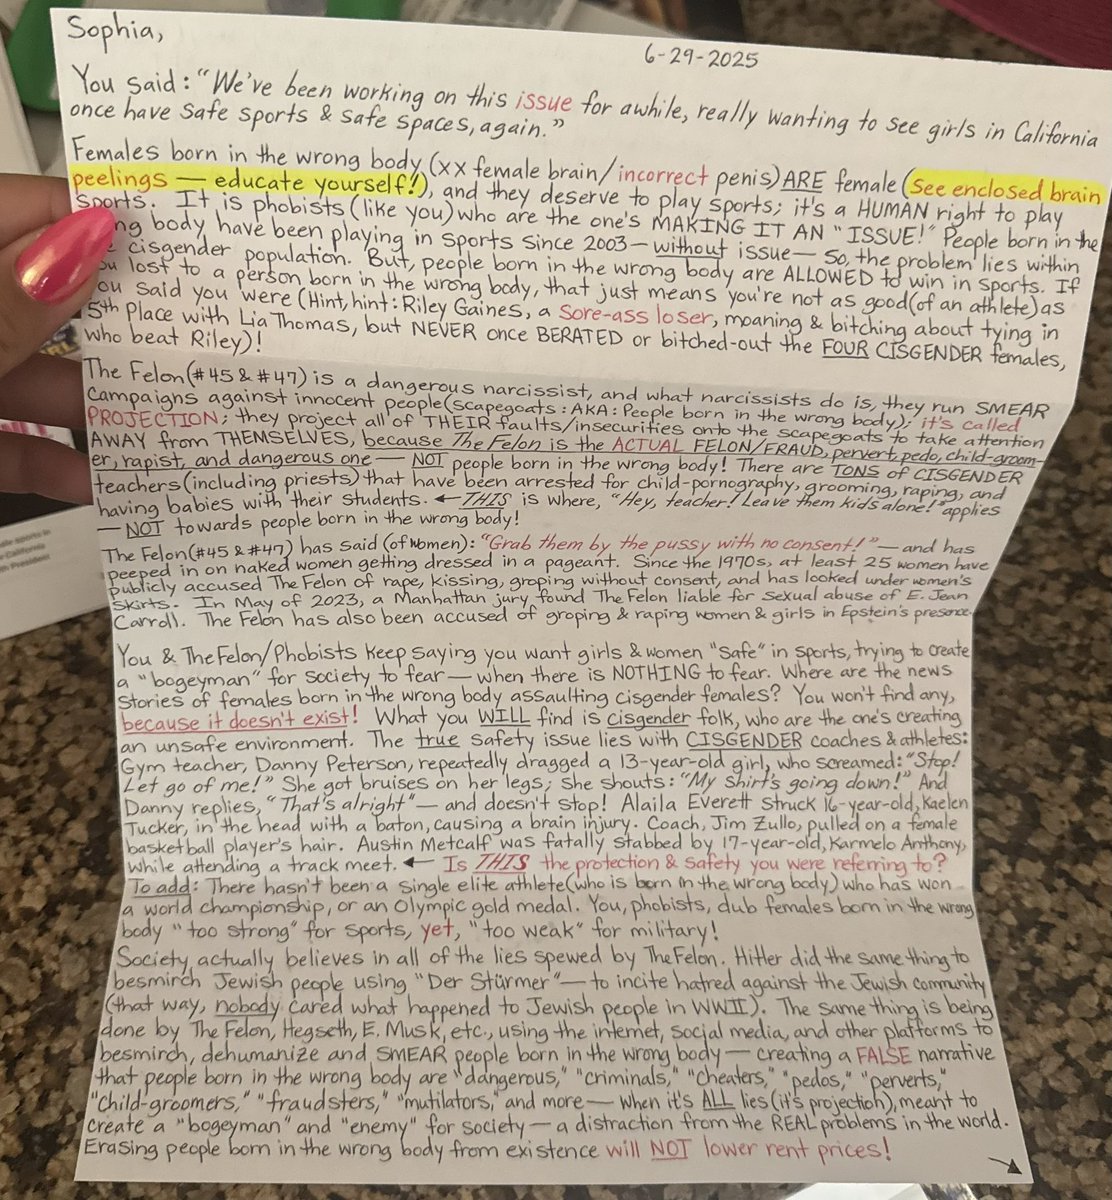 Sophia,
6-29-2025
You said: "We've been working on this issue for awhile, really wanting to see girls in California
once have safe sports & safe spaces, again."
Females born in the wrong body (xx female brain/incorrect penis) ARE female (see enclosed brain
peelings — educate yourself!), and they deserve to play sports; it's a HUMAN right to play
sports. It is phobists (like you) who are the one's MAKING IT AN "ISSUE!" People born in the
ng body have been playing in sports since 2003 — without issue — so, the problem lies within
cisgender population. But, people born in the wrong body are ALLOWED to win in sports. If
ou lost to a person born in the wrong body, that just means you're not as good (of an athlete) as
ou said you were (Hint, hint: Riley Gaines, a sore-ass loser, moaning & bitching about tying in
5th Place with Lia Thomas, but NEVER once BERATED or bitched-out the FOUR CISGENDER females,
who beat Riley)!
The Felon (#45 & #47) is a dangerous narcissist, and what narcissists do is, they run SMEAR
Campaigns against innocent people (scapegoats: AKA: People born in the wrong body); it's called
PROJECTION; they project all of THEIR faults/insecurities onto the scapegoats to take attention
AWAY from THEMSELVES, because The Felon is the ACTUAL FELON/FRAUD, pervert, pedo, child-groom-
er, rapist, and dangerous one — NOT people born in the wrong body! There are TONS of CISGENDER
teachers (including priests) that have been arrested for child-pornography, grooming, raping, and
having babies with their students. ← THIS is where, "Hey, teacher! Leave them kids alone!" applies
— NOT towards people born in the wrong body!
The Felon (#45 & #47) has said (of women): "Grab them by the pussy with no consent!" — and has
peeped in on naked women getting dressed in a pageant. Since the 1970s, at least 25 women have
publicly accused The Felon of rape, kissing, groping without consent, and has looked under women's
skirts. In May of 2023, a Manhattan jury found The Felon liable for sexual abuse of E. Jean
Carroll. The Felon has also been accused of groping & raping women & girls in Epstein's presence.
You & The Felon/Phobists keep saying you want girls & women "safe" in sports, trying to create
a "bogeyman" for society to fear — when there is NOTHING to fear. Where are the news
stories of females born in the wrong body assaulting cisgender females? You won't find any,
because it doesn't exist! What you WILL find is cisgender folk, who are the one's creating
an unsafe environment. The true safety issue lies with CISGENDER coaches & athletes:
Gym teacher, Danny Peterson, repeatedly dragged a 13-year-old girl, who screamed: "Stop!
Let go of me!" She got bruises on her legs; she shouts: "My shirt's going down!" And
Danny replies, "That's alright" — and doesn't stop! Alaila Everett struck 16-year-old, Kaelen
Tucker, in the head with a baton, causing a brain injury. Coach, Jim Zullo, pulled on a female
basketball player's hair. Austin Metcalf was fatally stabbed by 17-year-old, Karmelo Anthony,
while attending a track meet. ← Is THIS the protection & safety you were referring to?
To add: There hasn't been a single elite athlete (who is born in the wrong body) who has won
a world championship, or an Olympic gold medal. You, phobists, dub females born in the wrong
body "too strong" for sports, yet, "too weak" for military!
Society actually believes in all of the lies spewed by The Felon. Hitler did the same thing to
besmirch Jewish people using "Der Stürmer" — to incite hatred against the Jewish community
(that way, nobody cared what happened to Jewish people in WWII). The same thing is being
done by The Felon, Hegseth, E. Musk, etc., using the internet, social media, and other platforms to
besmirch, dehumanize and SMEAR people born in the wrong body — creating a FALSE narrative
that people born in the wrong body are "dangerous," "criminals," "cheaters," "pedos," "perverts,"
"child-groomers," "fraudsters," "mutilators," and more — when it's ALL lies (it's projection), meant to
create a "bogeyman" and "enemy" for society — a distraction from the REAL problems in the world.
Erasing people born in the wrong body from existence will NOT lower rent prices!